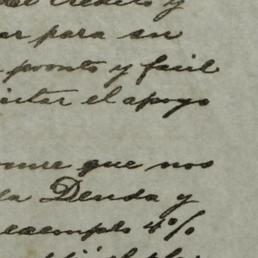 el credito y
ar para su
pronto y facil
citar el apoyo
que nos
la Deuda y
exemplo 4%